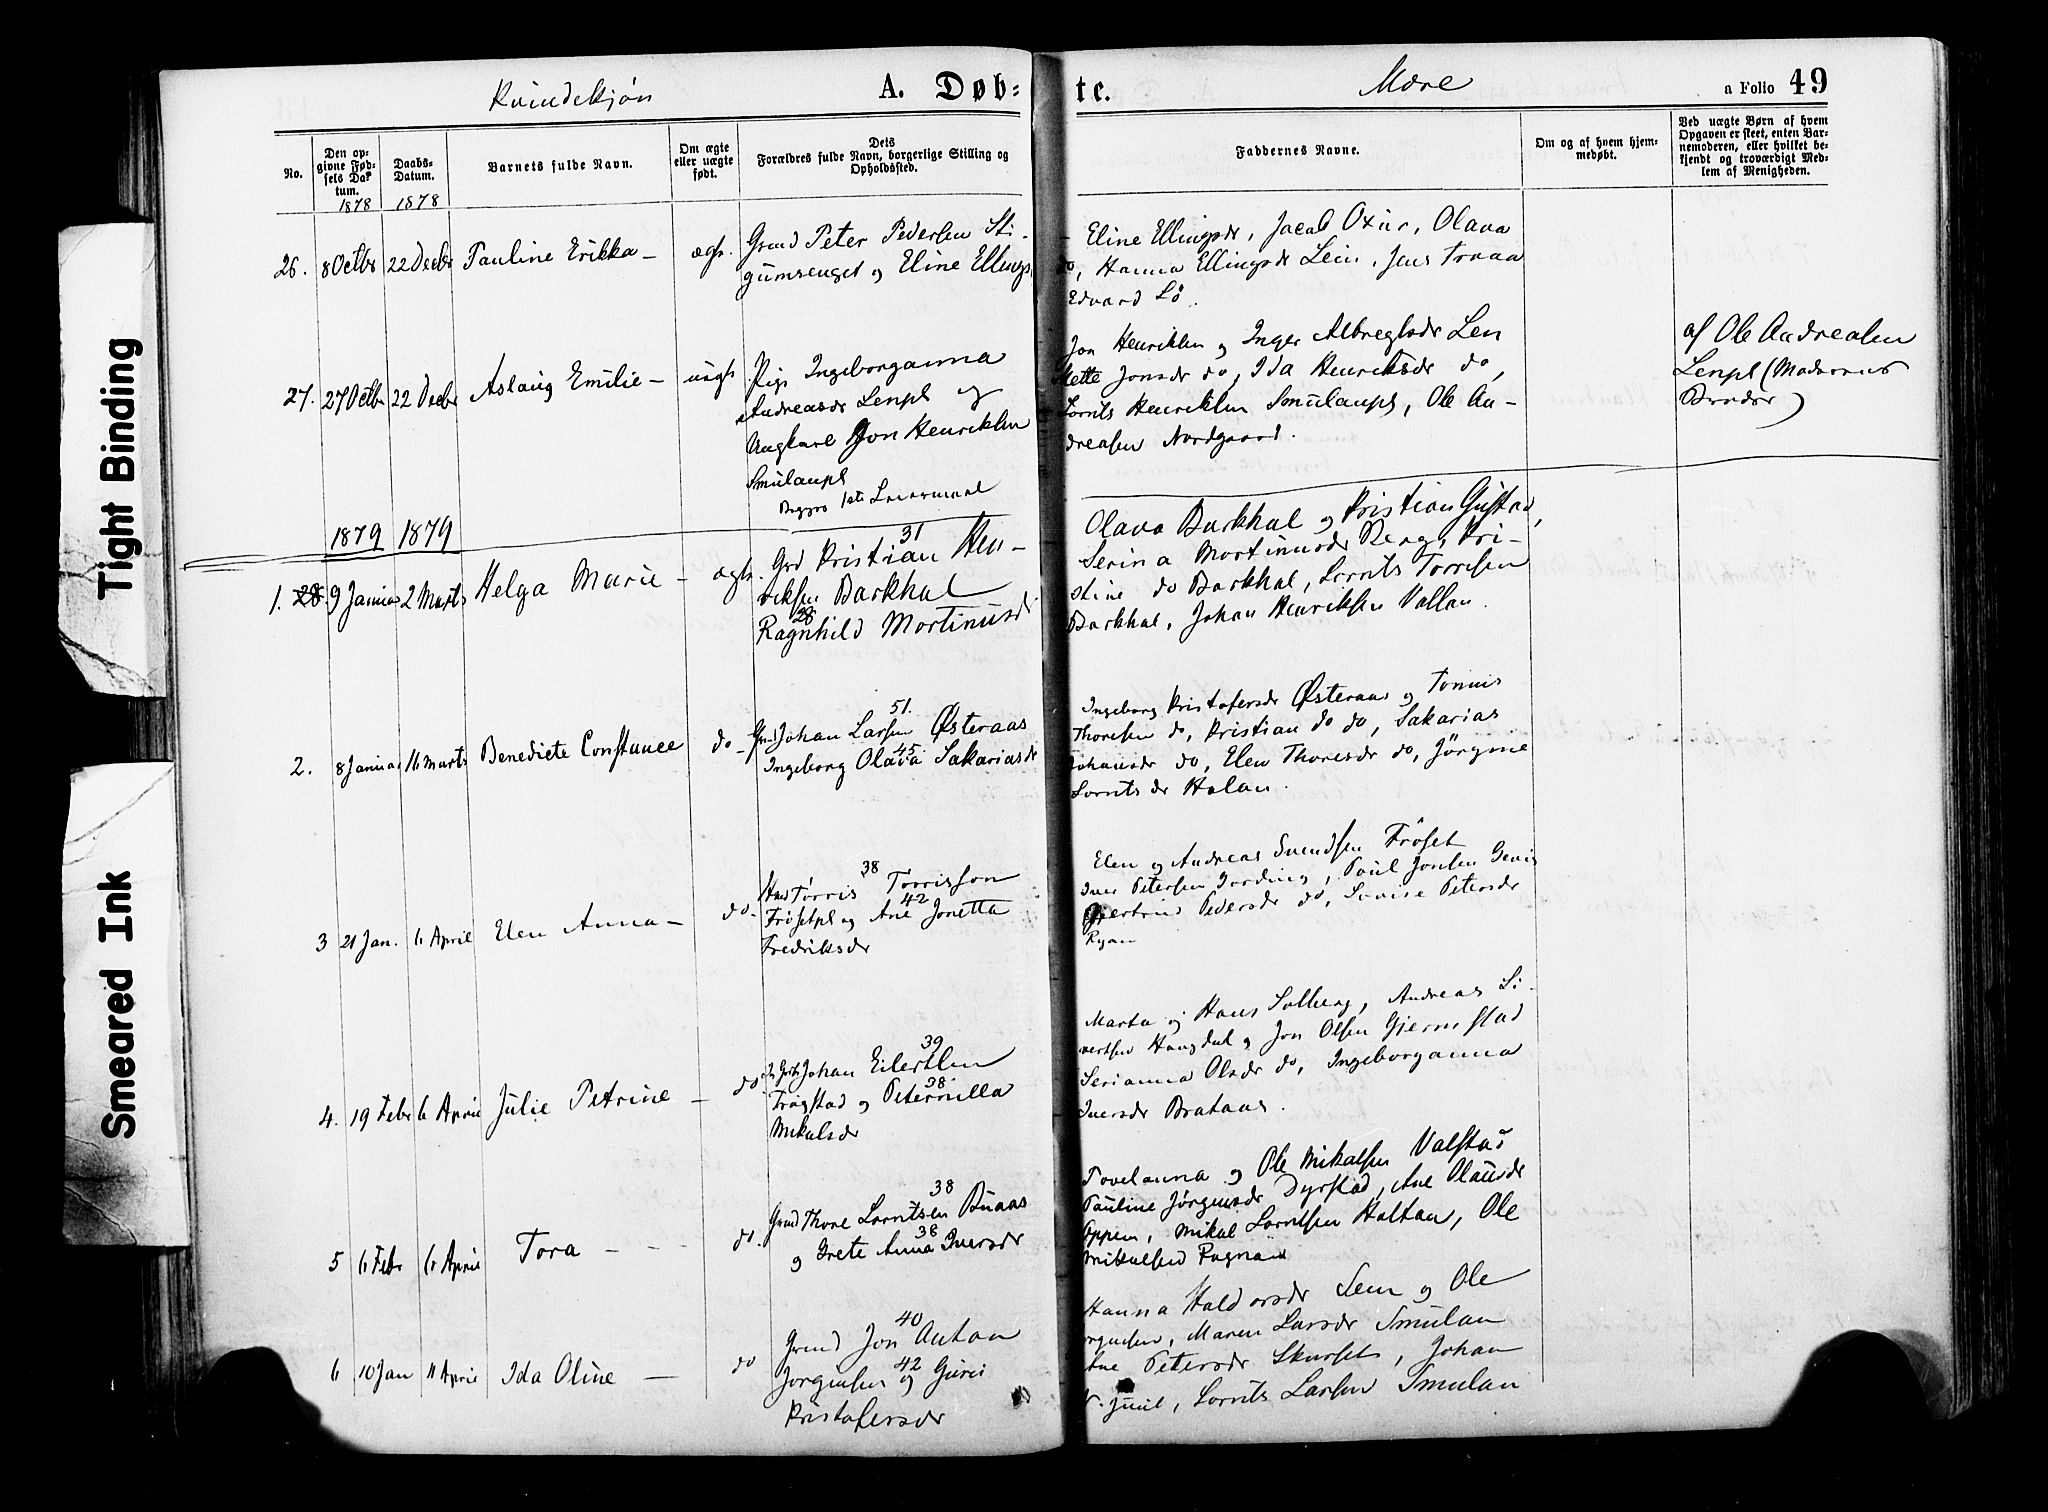 Kvindekjøn
A. Døb=
te.
Mære
a Folio 49
No.
Den op-
givne Fød-
sels Da-
tum.
1878
Daabs-
Datum.
1878
Barnets fulde Navn.
Om ægte
eller uægte
født.
Dets
Forældres fulde Navn, borgerlige Stilling og
Opholdssted.
Faddernes Navne.
Om og af hvem hjem-
medøbt.
Ved uægte Børn af hvem
Opgaven er skeet, enten Bar-
nemoderen, eller hvilket be-
kjendt og troværdigt Med-
lem af Menigheden.
26. 8 Octbr 22 Decbr Pauline Erikka — ægte.
Grmd Peter Pedersen Sti-
gumsenget og Eline Ellings
Eline Ellingsdr, Jacob Oxur, Olava
do, Hanna Ellingsdr Lein, Jens Traaa
Edvard Lö.
27. 27 Octbr 22 Decbr Aslaug Emilie — uægt
Pige Ingeborganna
Andreasdr Lenpl og
Ungkarl Jon Henriksen
Smulanpl
Begges 1ste Leiermaal
Jon Henriksen og Inger Albregtsdr Len
Mette Jonsdr do, Ida Henriksdr do,
Lornts Henriksen Smulanpl, Ole An-
dreasen Nordgaard.
af Ole Andreasen
Lenpl (Moderens
Broder)
1879 1879
1. 28. 9 Januar 2 Marts Helga Marie — ægte.
31
Grd Kristian Hen-
riksen Barkhal
28
Ragnhild Mortinusdr
Olava Barkhal og Kristian Gustad,
Serina Mortinusdr Berg, Kri-
stine do Barkhal, Lornts Torrisen
Barkhal, Johan Henriksen Vollan.
2. 8 Januar 16 Marts Benedicte Constance do —
51.
Grmd Johan Larsen Østeraas
45
Ingeborg Olava Sakariasdr
Ingeborg Kristofersdr Østeraas og Tonnis
Thoresen do, Kristian do do, Sakarias
Johansdr do, Elen Thoresdr do, Jörgine
Lorntsdr Halan.
3 21 Jan. 6 April Elen Anna — do.
38
Hmd Tørris Torrisson
42
Frøsetpl og Ane Jonetta
Fredriksdr
Elen og Andreas Svendsen Fröset
Iver Petersen Jørding, Paul Jonsen
Gjertrud Pedersdr do, Lovise Petersdr
Ryan
4. 19 Febr 6 April Julie Petrine — do
39
Johan Eilertsen
38.
Frøgstad og Peternilla
Mikalsdr
Marta og Hans Solberg, Andreas Si-
vertsen Haugdal og Jon Olsen Gjermstad
Serianna Olsdr do, Ingeborganna
Iversdr Brataas.
5 6 Febr 6 April Tora — — — do.
38
Grmd Thore Lorntsen Buaas
38
og Grete Anna Iversdr
Tovelanna og Ole Mikalsen Valstad
Pauline Jörgensdr Dyrstad, Ane Olausdr
Oppem, Mikal Lorntsen Haltan, Ole
Mikalsen Rognan
6 10 Jan 11 April Ida Oline — do
40
Grmd Jon Anton
42
Jorgensen og Guri
Kristofersdr
Hanna Haldorsdr Sem og Ole
Jorgensen, Maren Larsdr Smulan
Ane Petersdr Skurset, Johan
Lornts Larsen Smulan
Tight Binding
Smeared Ink